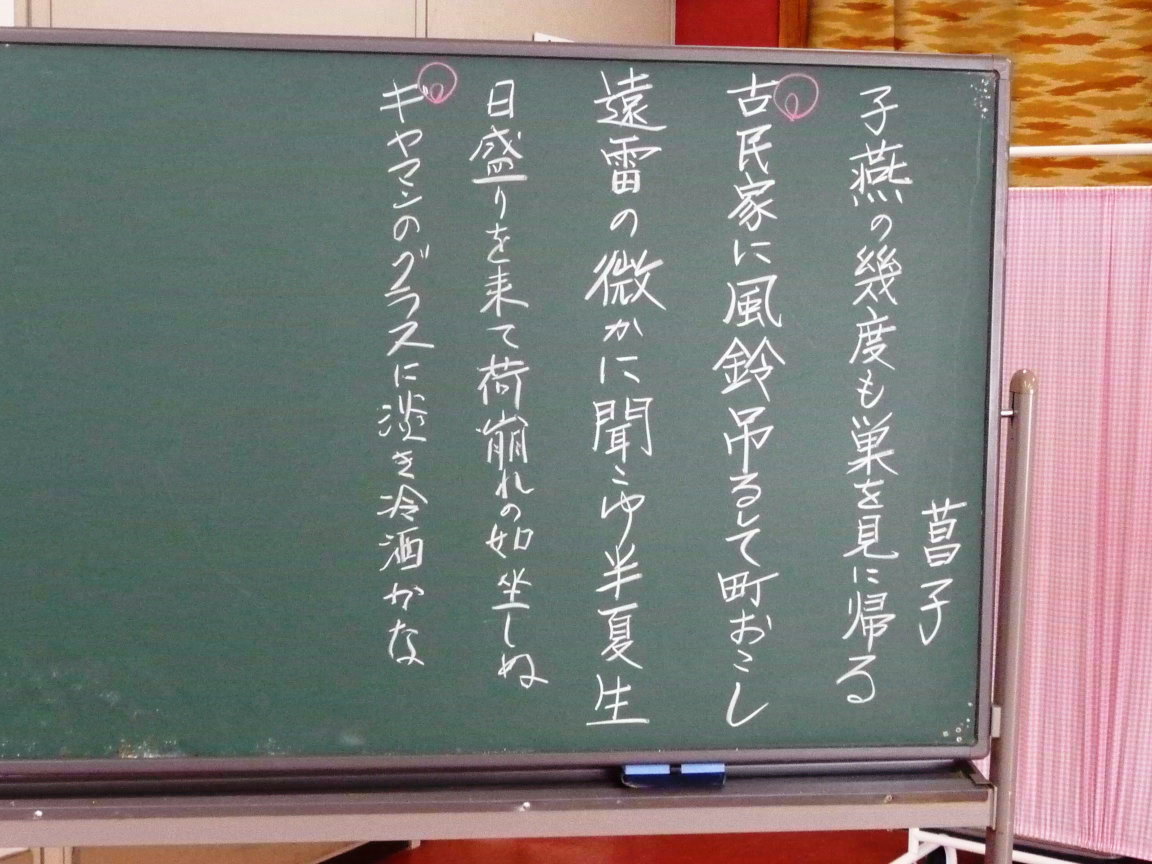 菖子
子燕の幾度も巣を見に帰る
古民家に風鈴吊るして町おこし
遠雷の微かに聞こゆ半夏生
日盛りを来て荷崩れの如坐しぬ
ギヤマンのグラスに淡き冷酒かな